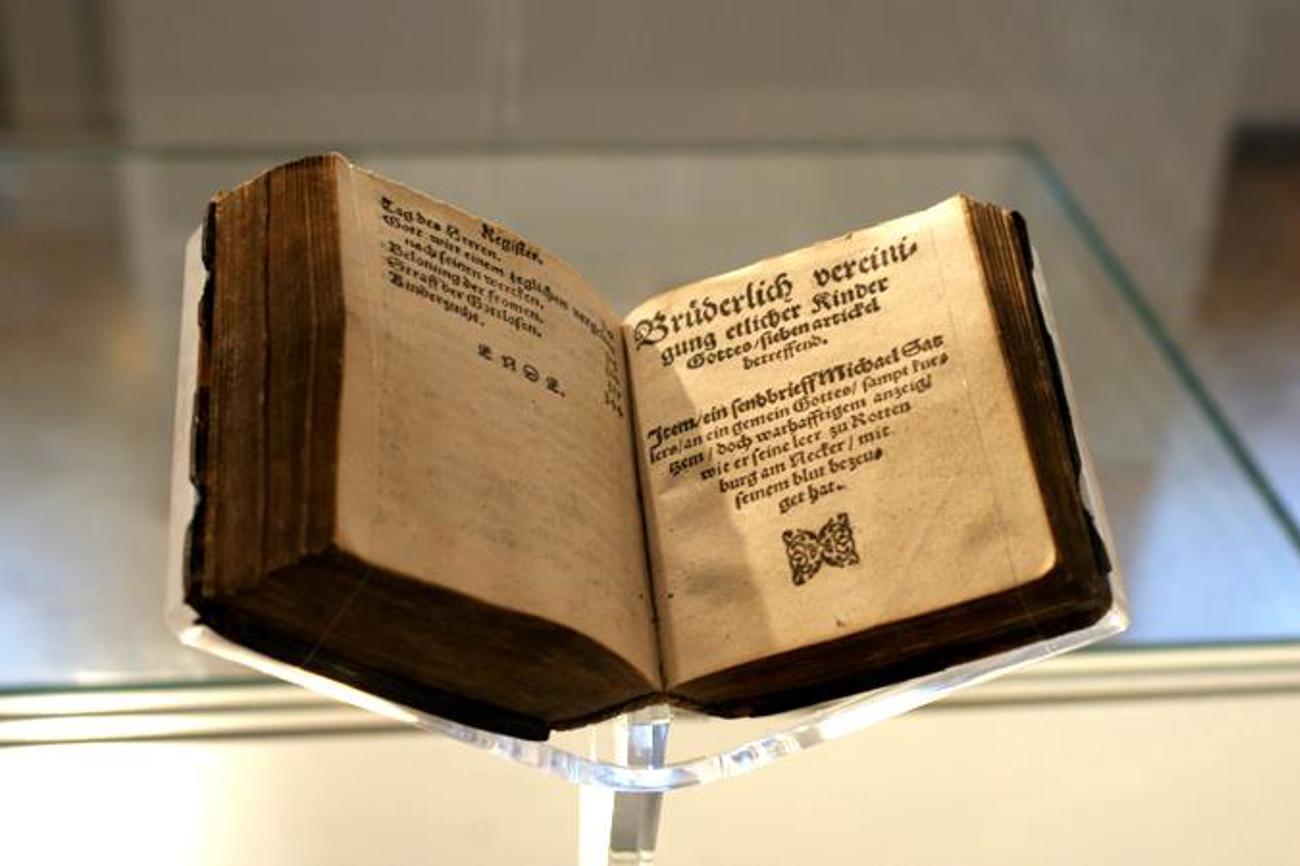 Register.
Tag des Herren.
Gott wirt einem yeglichen
nach seinen wercken.
Belonung der fromen.
Straff der Gottlosen.
Kinderzucht.
E N D E.
Brüderlich vereini-
gung etlicher Kinder
Gottes/sieben artickel
betreffend.
Item/ein sendbrieff Michael Sat
lers/an ein gemein Gottes/sampt kur
tzem/doch warhafftigem anzeig/
wie er seine leer zu Rotten
burg am Necker/mit
seinem blut bezeu-
get hat.